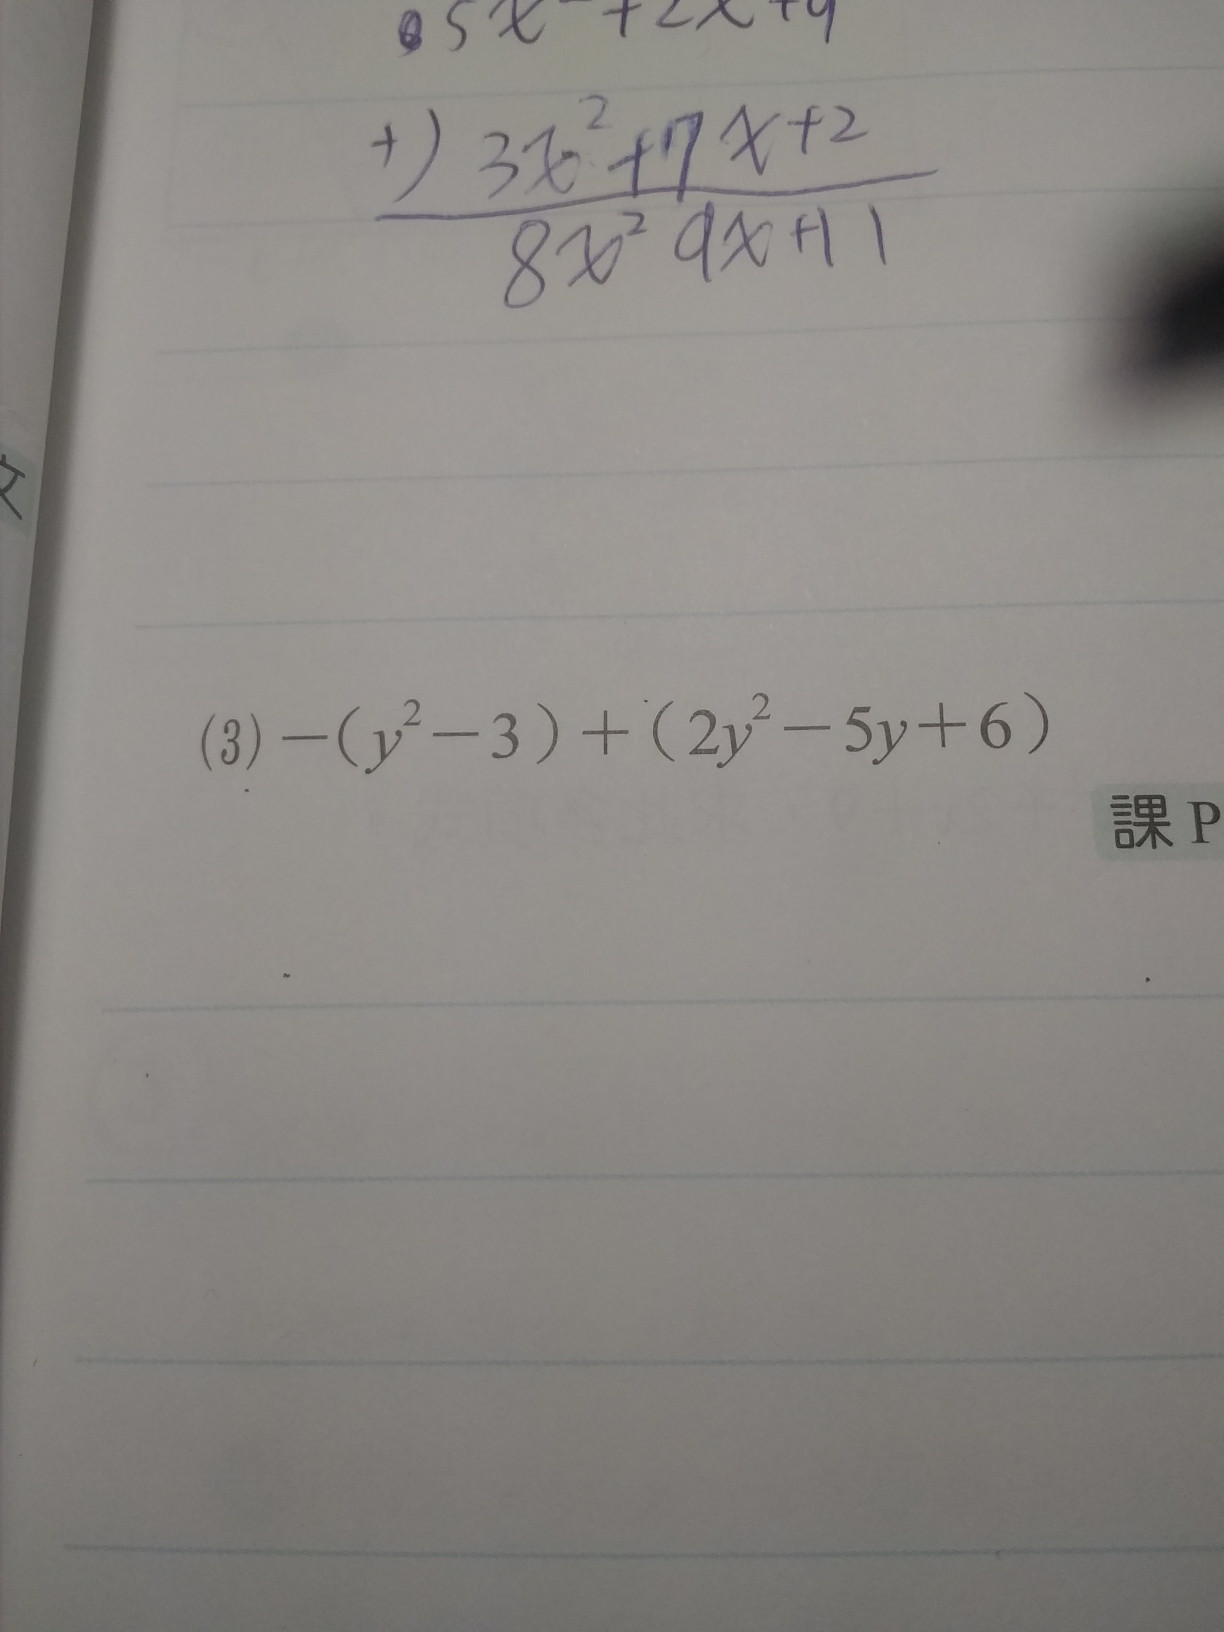 5x²+2x+9
+) 3x²+7x+2
8x² 9x+11
文
(3) −(y²−3)+(2y²−5y+6)
課 P